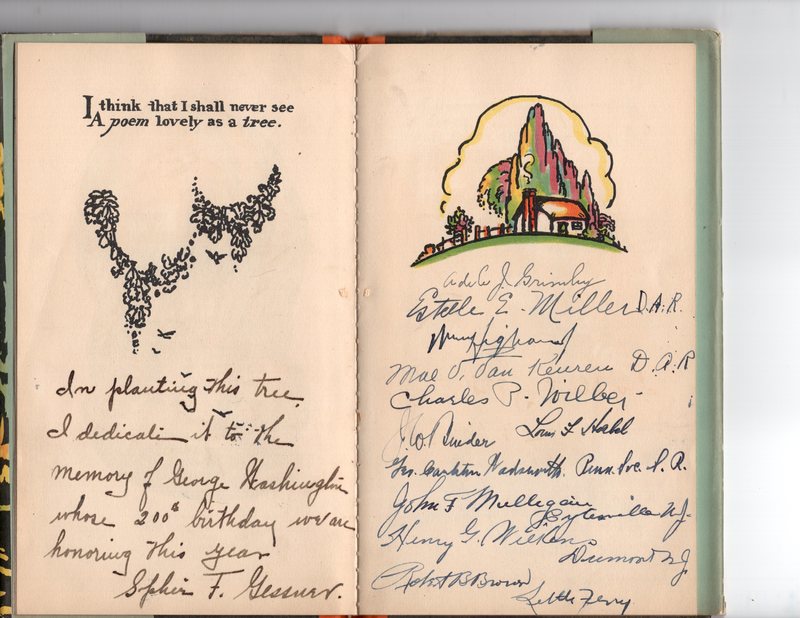 I think that I shall never see
A poem lovely as a tree.
In planting this tree,
I dedicate it to the
memory of George Washington
whose 200th birthday we are
honoring this year
F. Gessner.
J. Grimby
Estelle E. Miller D.A.R.
Mae V. Van Keuren D.A.R
Charles P. Wilber
J. W. Binder
Louis F
Geo. Wadsworth. Penn. Soc. S. R.
John F Mulligan
Coytesville N.J.
Henry G. Wilkens
Dumont N J
B Brown
Little Ferry